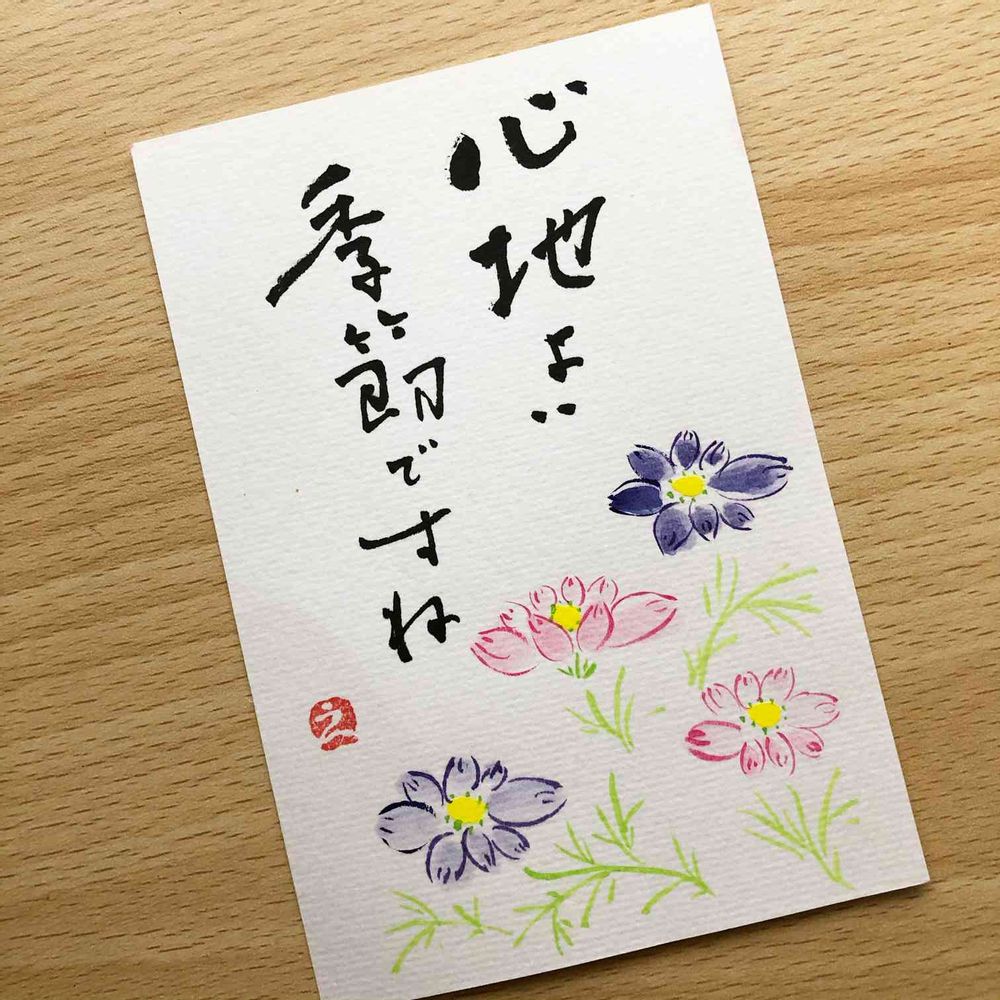 心地よい
季節ですね